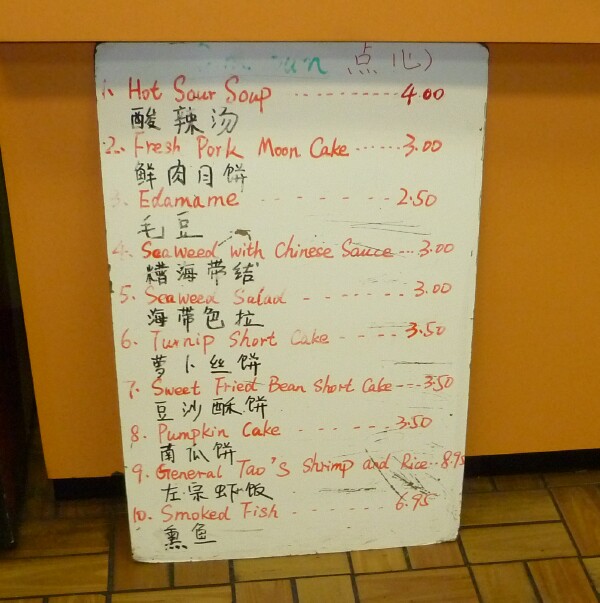 点心)
1. Hot Sour Soup ---------- 4.00
酸辣汤
2. Fresh Pork Moon Cake ------ 3.00
鲜肉月饼
3. Edamame - - - - - - 2.50
毛豆
4. Seaweed with Chinese Sauce --- 3.00
糟海带结
5. Seaweed Salad - - - - - - - 3.00
海带色拉
6. Turnip Short Cake - - - - 3.50
萝卜丝饼
7. Sweet Fried Bean Short Cake --- 3.50
豆沙酥饼
8. Pumpkin Cake - - - - - 3.50
南瓜饼
9. General Tao's Shrimp and Rice -- 8.95
左宗虾饭
10. Smoked Fish - - - - - - 6.95
熏鱼